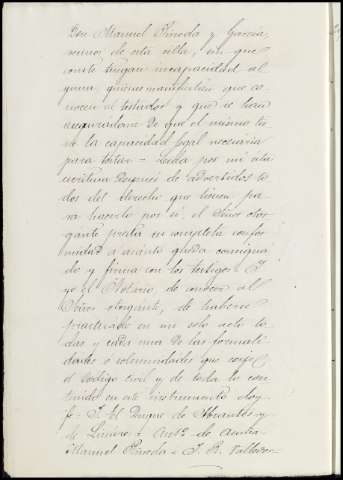 Don Manuel Pineda y Garcia,
vecinos de esta villa, sin que
conste tengan incapacidad al
guna quienes manifiestan que co-
nocen al testador y que se han
asegurado de que el mismo tie
ne la capacidad legal necesaria
para testar = Leida por mi esta
escritura despues de advertidos to
dos del derecho que tienen pa-
ra hacerlo por si, el Señor otor
gante presta su completa confor
midad a cuanto queda consigna
do y firma con los testigos. Y
yo el Notario, de conocer al
Señor otorgante, de haberse
practicado en un solo acto to
das y cada una de las formali
dades o solemnidades que exije
el Codigo civil y de todo lo con
tenido en este instrumento doy
fe = El Duque de Abrantes y
de Linares = Antº de
Manuel Pineda = J. R.